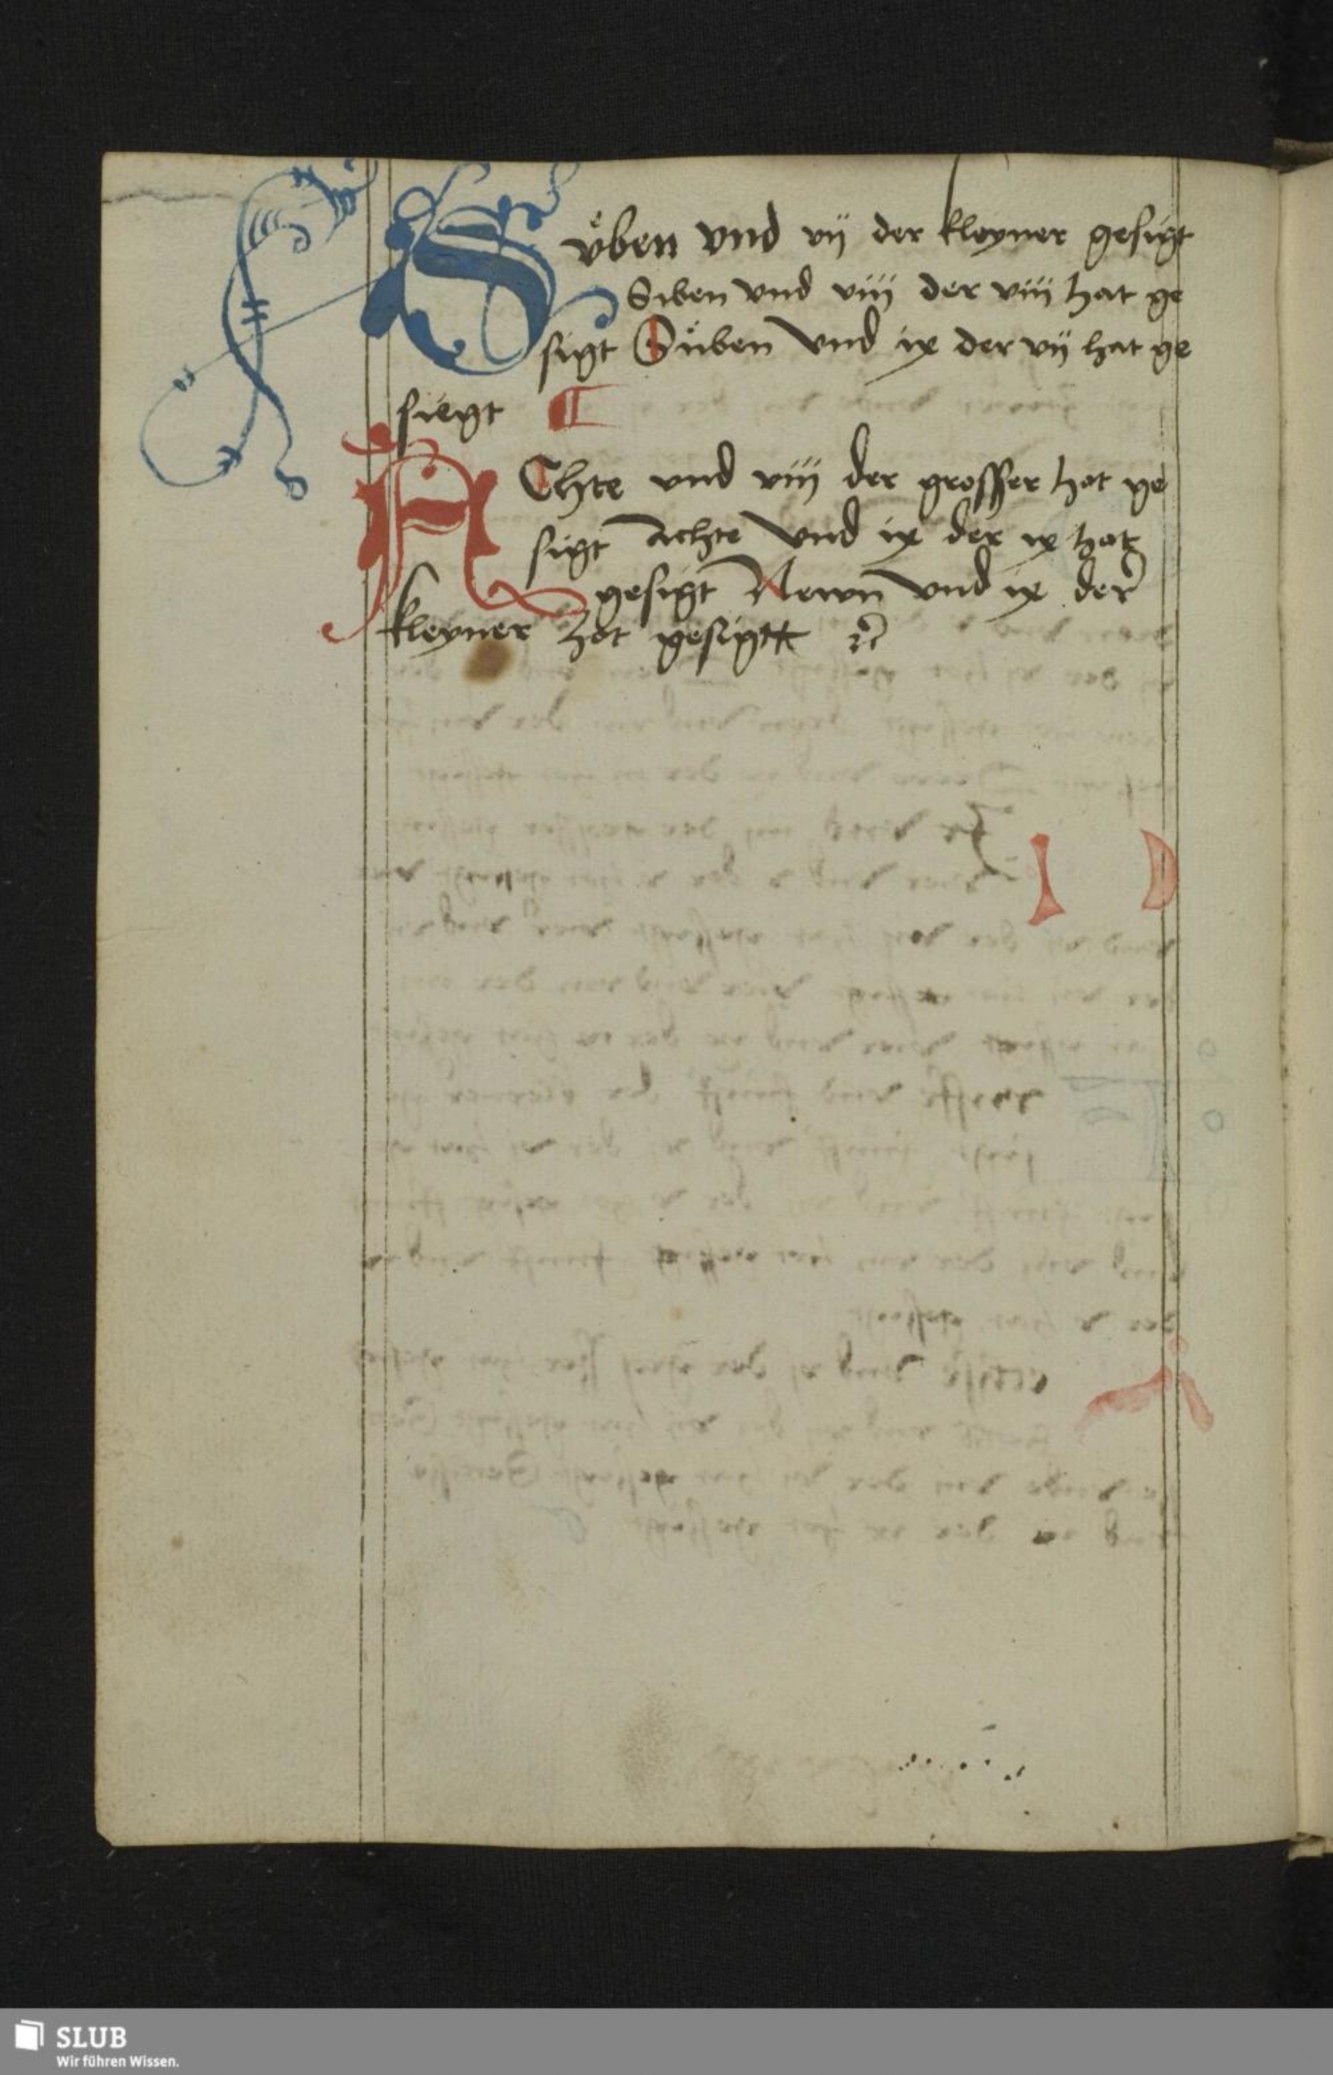 Süben vnd vij der kleyner gesigt
Siben vnd viij der viij hat ge
sigt Süben vnd ix der vij hat ge
siegt
AChte vnd viij der grosser hot ge
sigt Achte vnd ix der ix hat
gesigt Newn vnd ix der
kleyner hot gesigtt
SLUB
Wir führen Wissen.